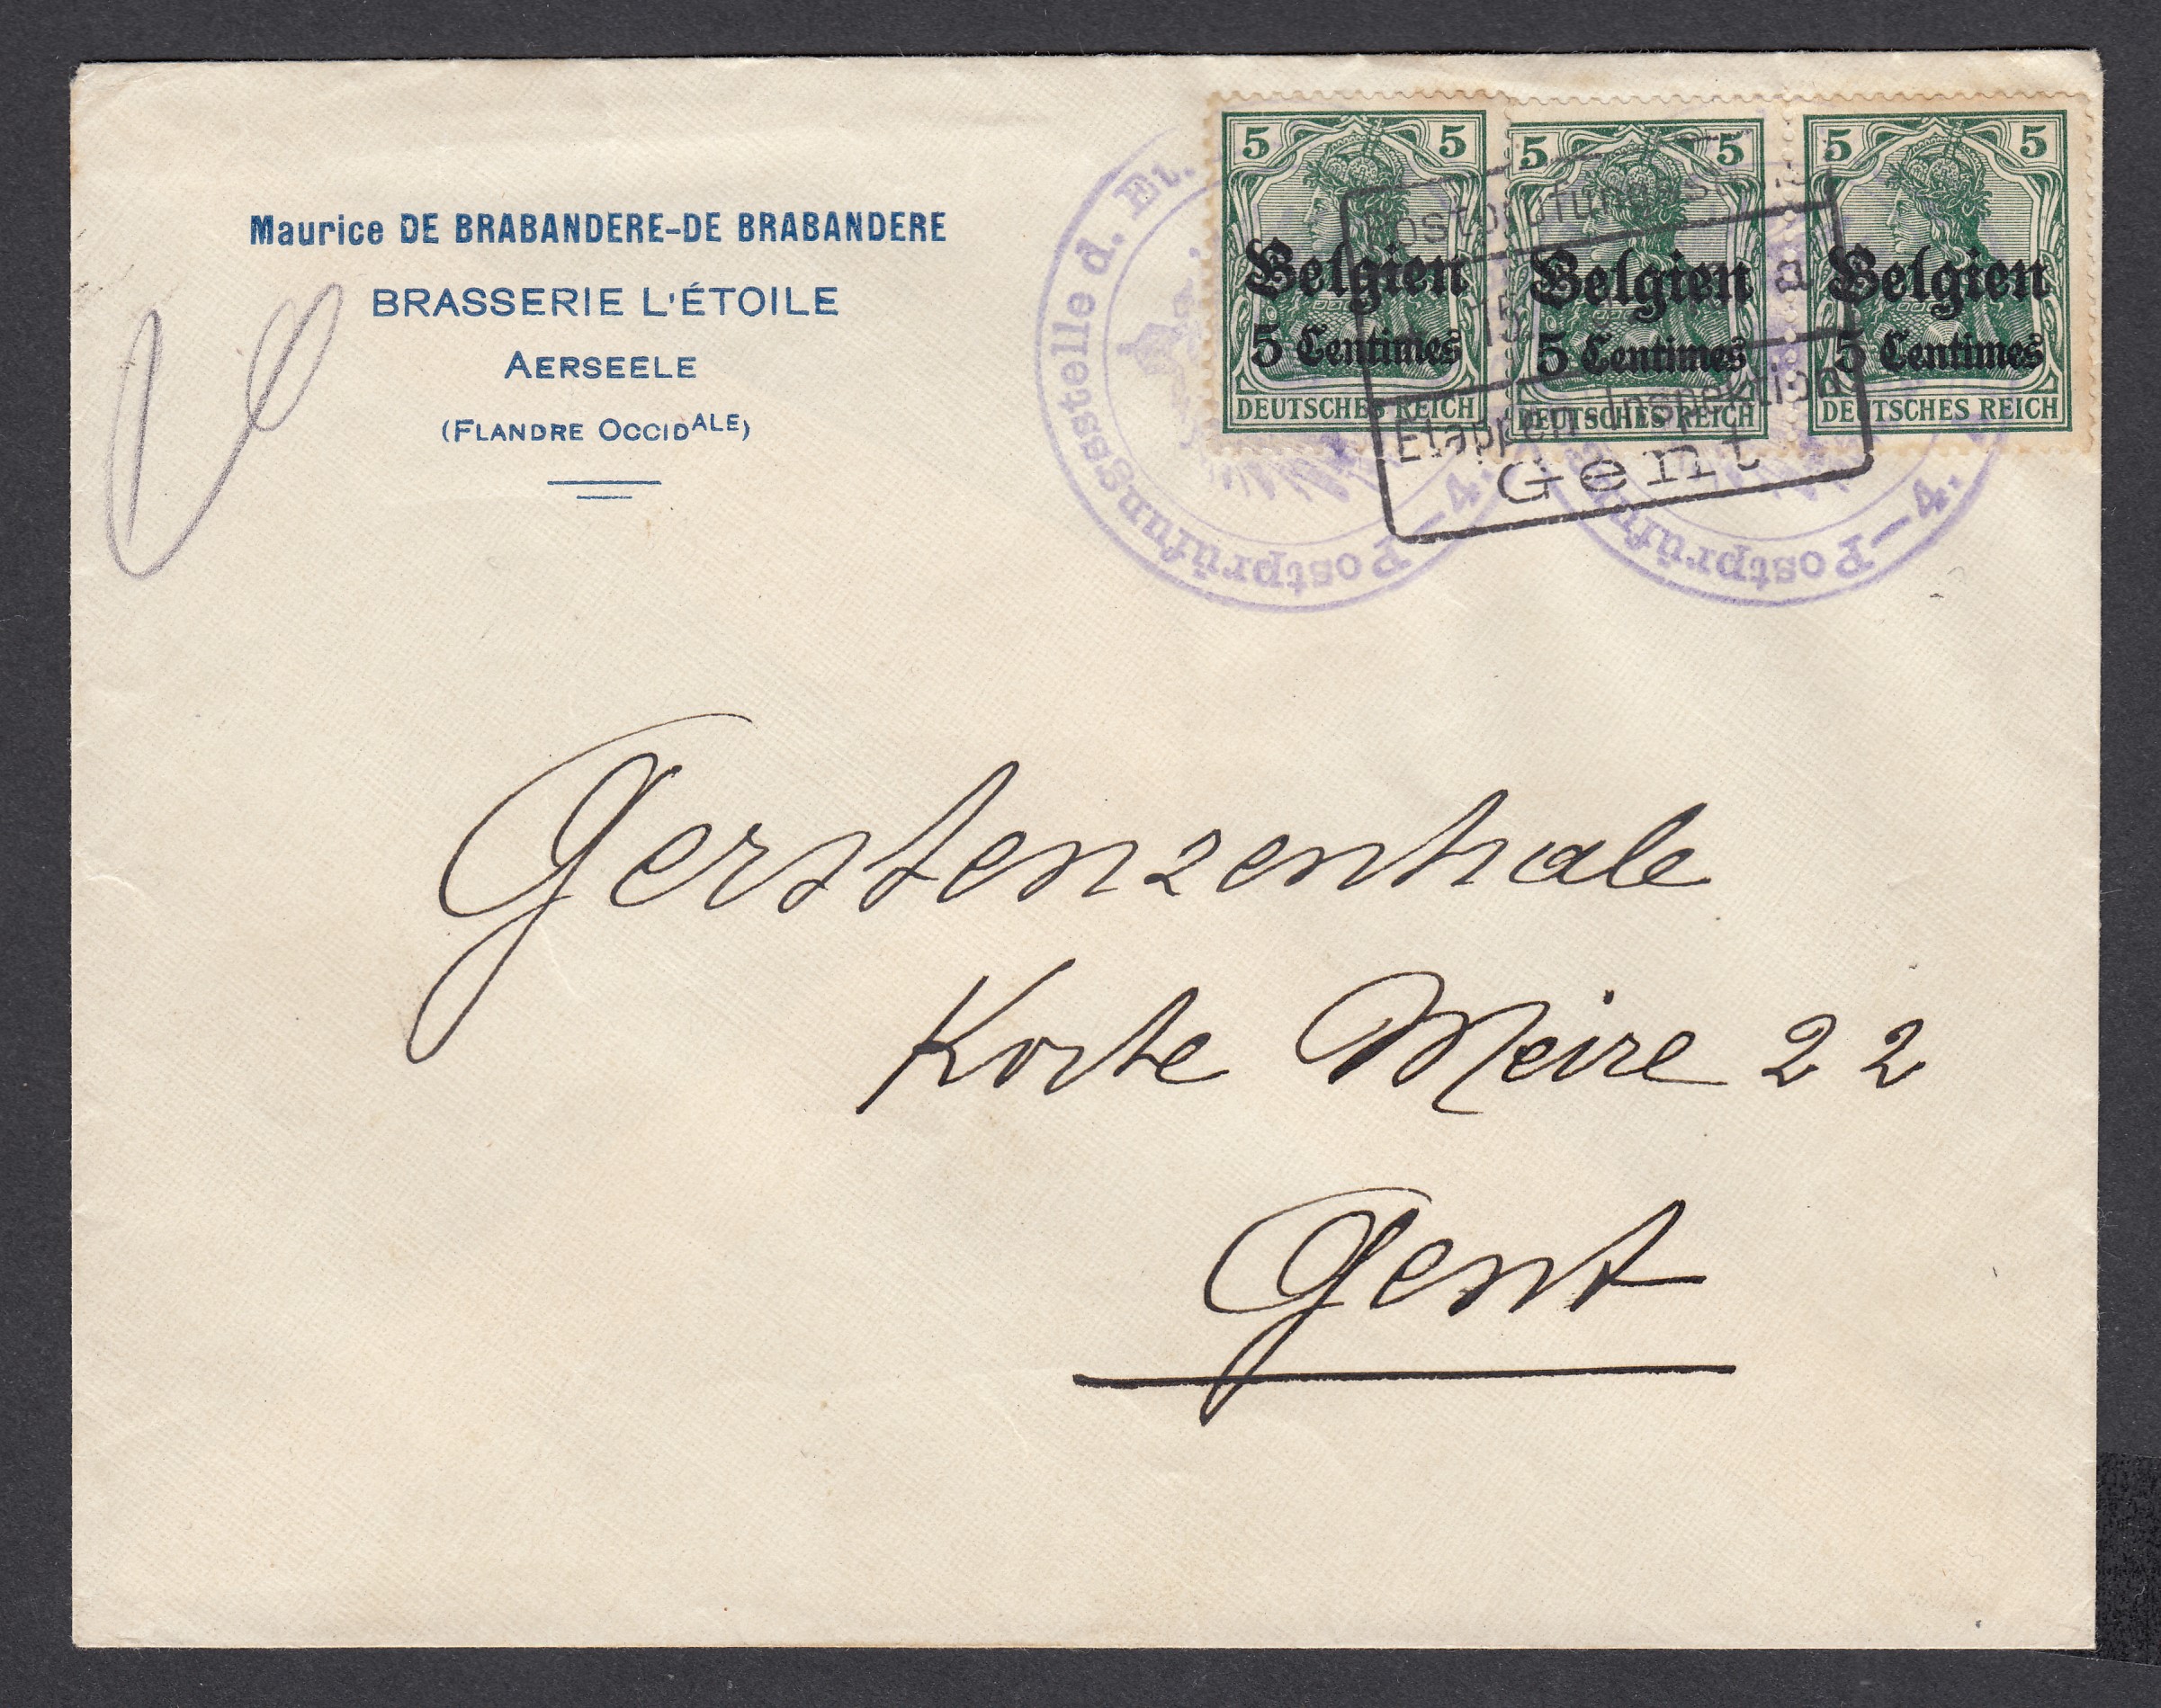 Maurice DE BRABANDERE-DE BRABANDERE
BRASSERIE L'ÉTOILE
AERSEELE
(FLANDRE OCCIDALE)
5 5
Belgien
5 Centimes
DEUTSCHES REICH
5 5
Belgien
5 Centimes
DEUTSCHES REICH
5 5
Belgien
5 Centimes
DEUTSCHES REICH
Etappen-Inspektion
Gent
Postprüfungsstelle d. Et.
4.
Postprüfun
4.
Gerstenzentrale
Korte Meire 22
Gent